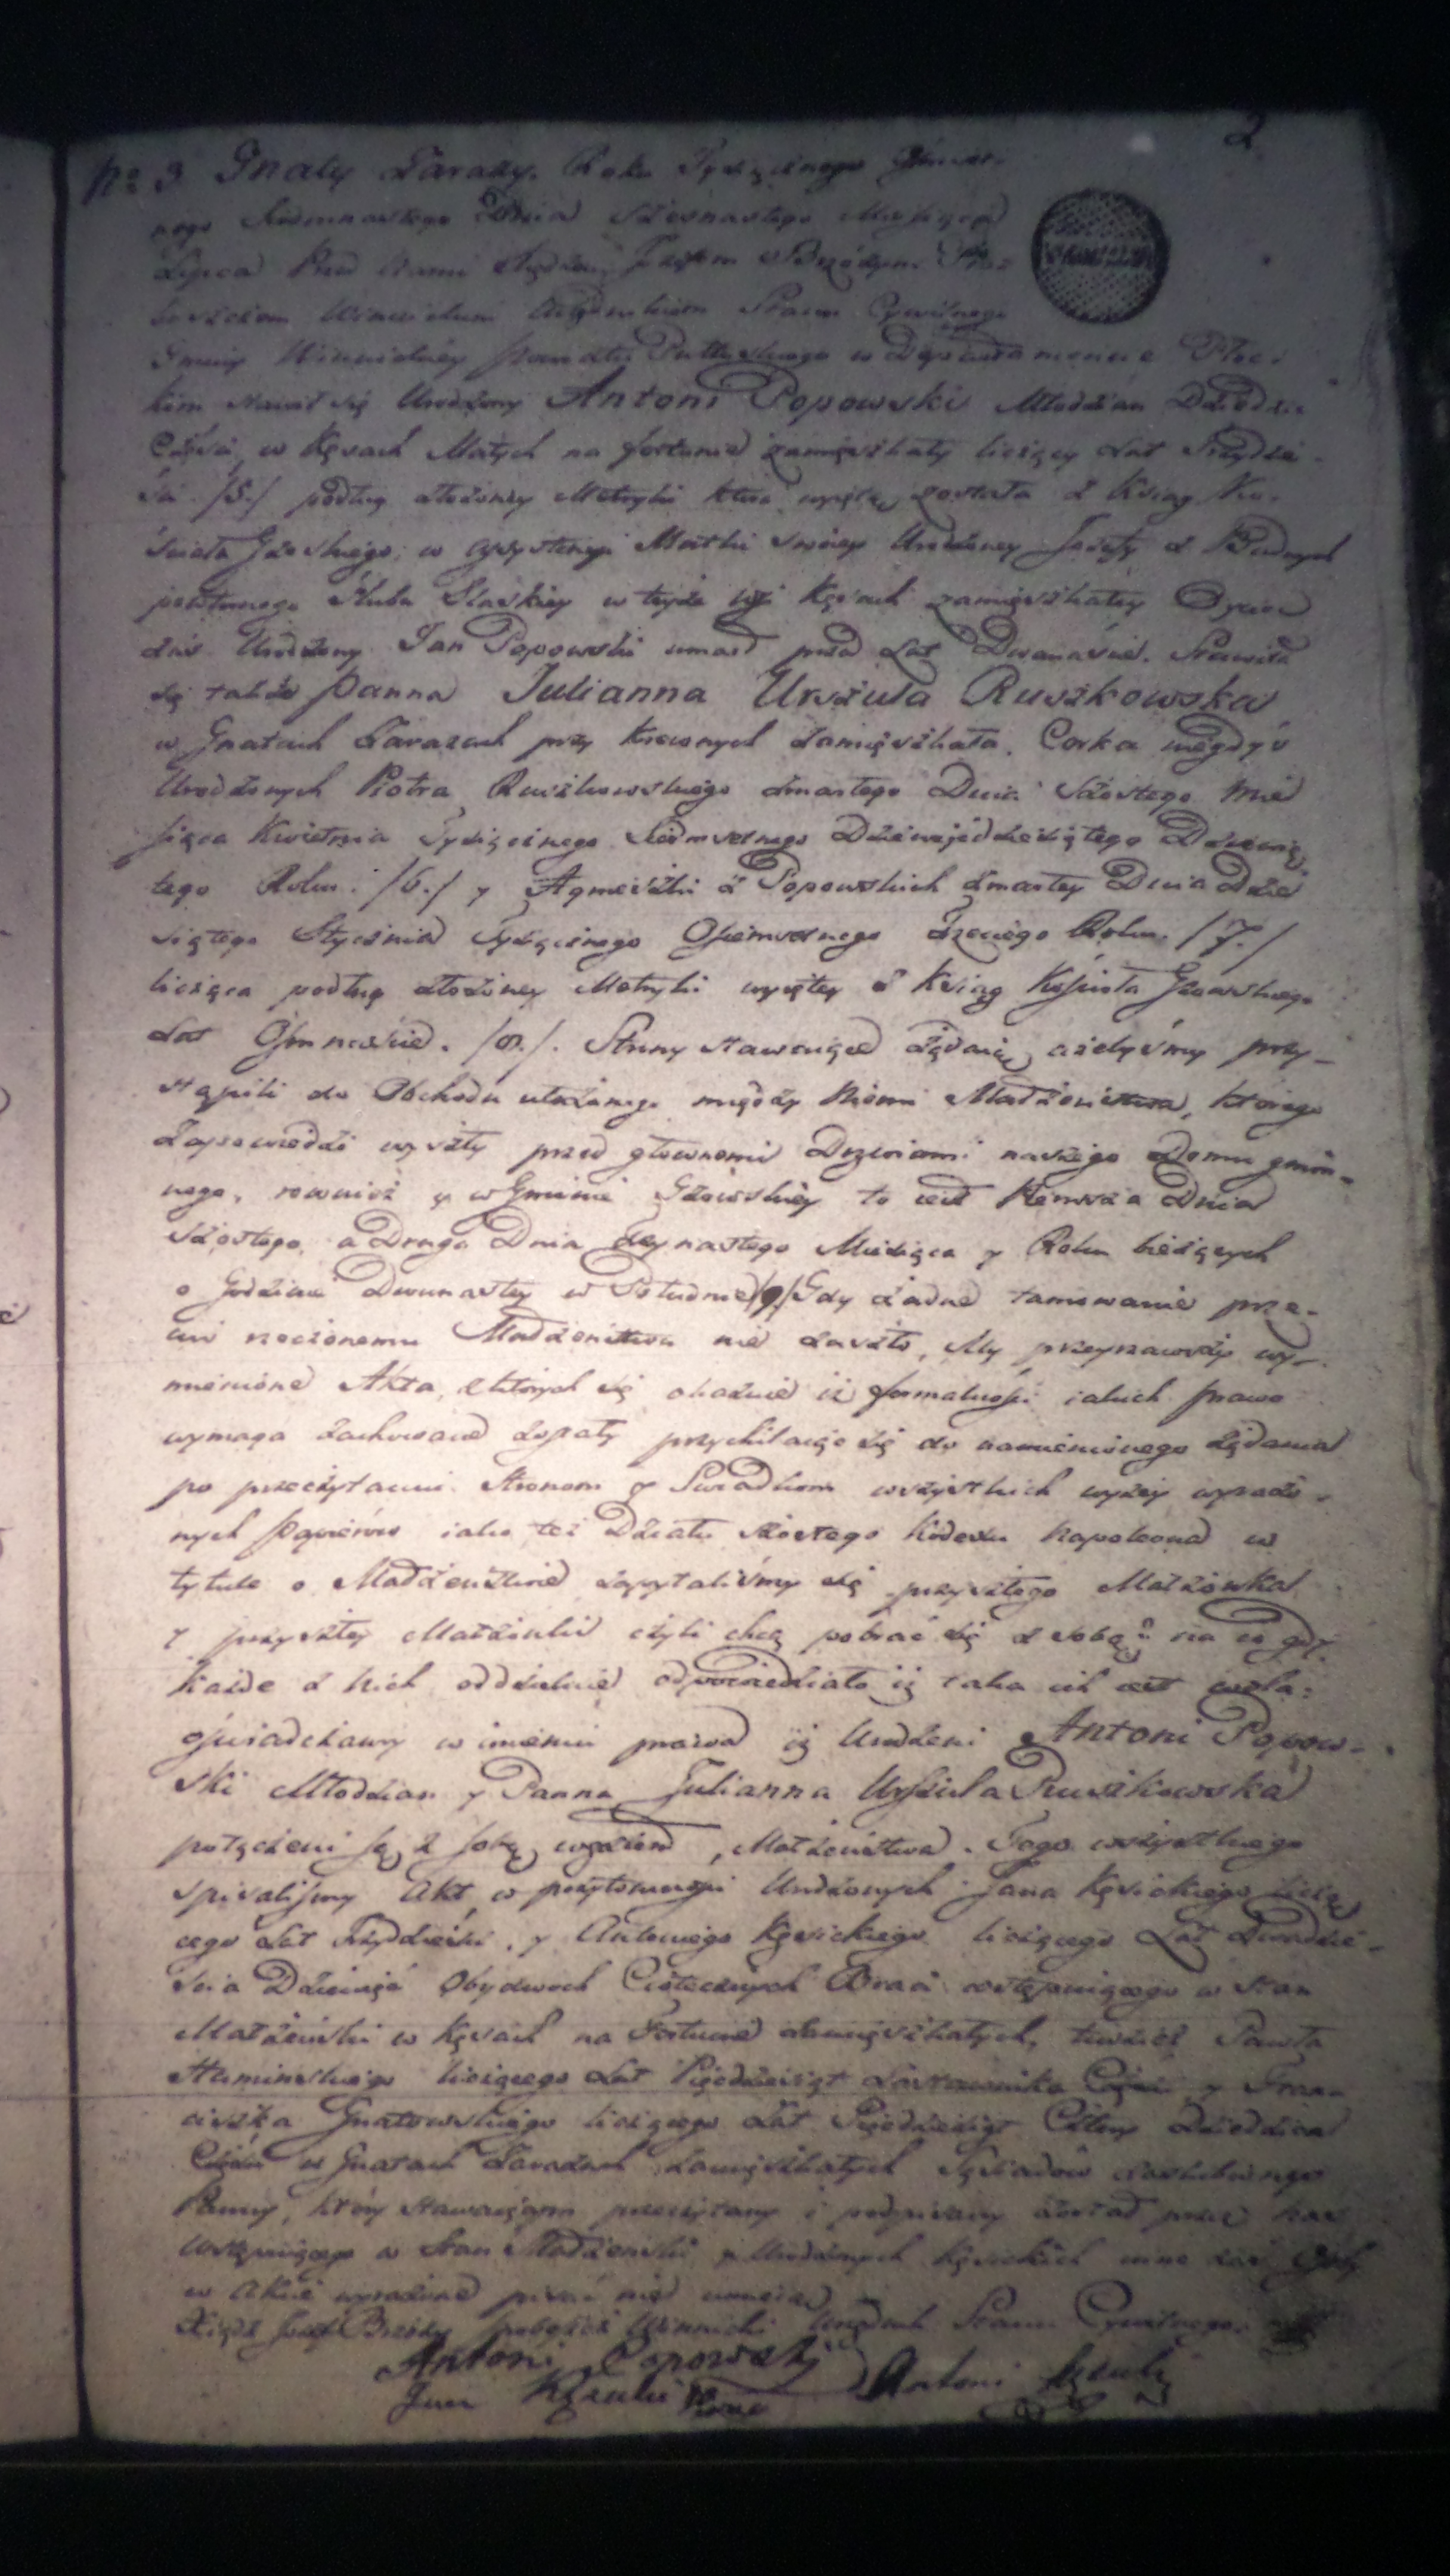 2
No 3 Gnaty Zarazy. Roku Tysiącznego
nego Siedmnastego Dnia Szesnastego Miesiąca
Lipca Przed Nami Xiędzem
Stanu Cywilnego
Gminy Winnickiey Powiatu Pułtuskiego w Departamencie Płoc-
kim stawił się Urodzony Antoni Popowski Młodzian Dziedzic
Części w Kęsach Małych na fortunie zamięszkały liczący Lat Trzydzie-
ści /5./ podług złożoney Metryki która wyięta została z Ksiąg Ko-
ścioła Gzoskiego; w assystencyi Matki swoiey Urodzoney Józefy z
powtornego Ślubu w teyże wsi Kęsach zamięszkałey Oyciec
zaś Urodzony Jan Popowski umarł przed Lat Dwanaście. Stawiła
się także Panna Julianna Urszula Ruszkowska
w Gnatach Zarazach przy Krewnych zamięszkała. Corka niegdyś
Urodzonych Piotra Ruszkowskiego zmarłego Dnia Szostego Mie
siąca Kwietnia Tysiącznego Siedmsetnego Dziewiędziesiątego Dziewią
tego Roku. /6./ y Agnieszki z Popowskich zmarłey Dnia Dzie
siątego Stycznia Tysiącznego Osiemsetnego Trzeciego Roku. /7./
licząca podług złożoney Metryki wyiętey z Ksiąg Kościoła Gzowskiego
Lat Ośmnaście. /8./. Strony stawaiące żądaią ażebyśmy przy-
stąpili do Obchodu ułożonego między Niemi Małżeństwa, którego
Zapowiedzi wyszły przed głownemi Drzwiami naszego Domu gmin-
nego, rownież y w Gminie Gzowskiey to iest Pierwsza Dnia
Szostego, a Druga Dnia Miesiąca y Roku bieżących
o Godzinie Dwunastey w Południe /9/ Gdy żadne tamowanie prze-
ciw rzeczonemu Małżeństwu nie zaszło, My przeyrzawszy wy-
mienione Akta, z których się okazuie iż formalności iakich prawo
wymaga zachowane zostały przychilaiąc się do namienionego żądania
po przeczytaniu Stronom y Swiadkom wszystkich wyżey wyrażo-
nych Papierów iako też Działu szóstego Kodexu Napoleona w
tytule o Małżeństwie zapytaliśmy się przyszłego Małżonka
y przyszłey Małżonki czyli chcą pobrać się z sobą: na co gdy
każde z Nich oddzielnie odpowiedziało iż taka ich iest wola:
oświadczamy w imieniu prawa iż Urodzeni Antoni Popow-
ski Młodzian y Panna Julianna Urszula Ruszkowska
połączeni są z sobą węzłem Małżeństwa. Tego wszystkiego
spisaliśmy Akt w przytomności Urodzonych Jana Kęsickiego liczą
cego Lat Trzydzieści, y Antoniego Kęsickiego liczącego Lat Dwadzie-
ścia Dziewięć Obydwoch Ciotecznych Braci wstępuiącego w stan
Małżeński w Kęsach na Fortunie zamięszkałych, tudzież Pawła
liczącego Lat Pięćdziesiąt Zastawnika Części y Fran-
ciszka Gnatowskiego liczącego Lat Pięćdziesiąt Cztery Dziedzica
Części w Gnatach Zarazach zamięszkałych Sąsiadów zaślubioney
Panny, który stawaiącym przeczytany i podpisany został przez nas
wstępuiącego w Stan Małżeński y Urodzonych Kęsickich inne zaś Osoby
w Akcie wyrażone pisać nie umieią
Xiądz Winnicki Urzędnik Stanu Cywilnego
Antoni Popowski
Jan Kęsicki Antoni Kęsicki